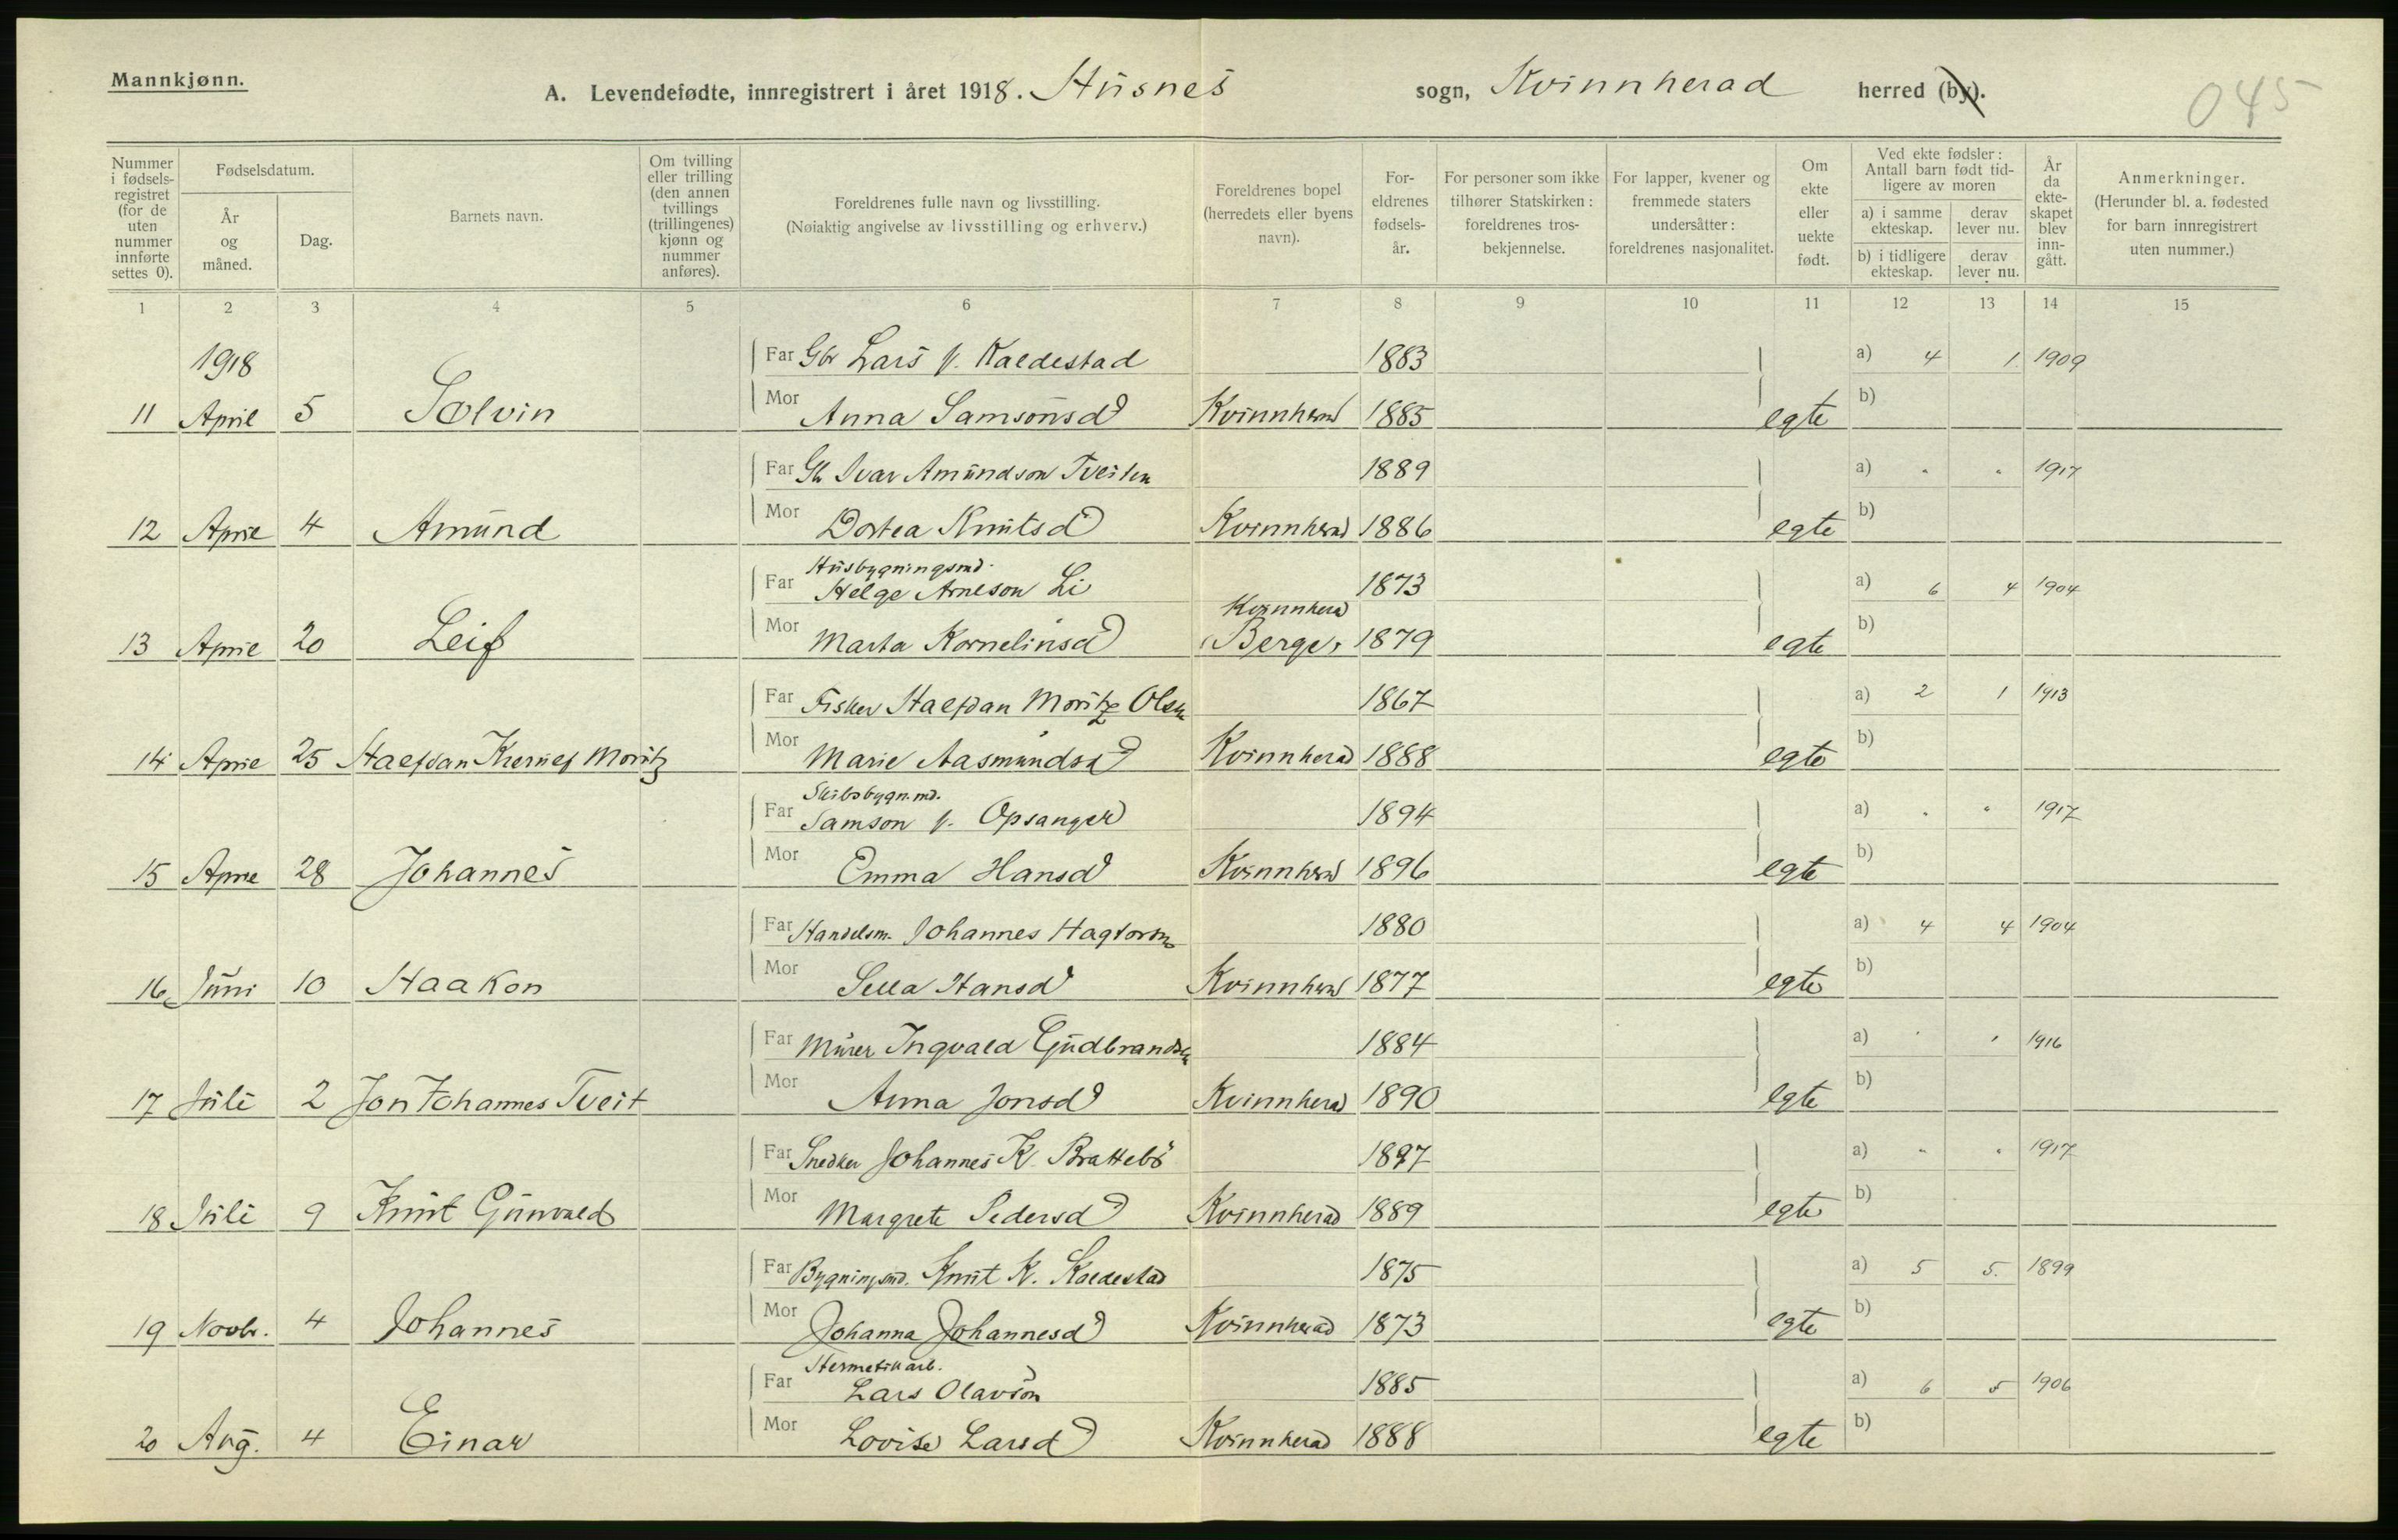 Mannkjønn.
A. Levendefødte, innregistrert i året 1918. Husnes sogn, Kvinnherad herred (by).
045
Nummer i fødsels-registret (for de uten nummer innførte settes 0).
Fødselsdatum.
År og måned.
Dag.
Barnets navn.
Om tvilling eller trilling (den annen tvillings (trillingenes) kjønn og nummer anføres).
Foreldrenes fulle navn og livsstilling.
(Nøiaktig angivelse av livsstilling og erhverv.)
Foreldrenes bopel (herredets eller byens navn).
For-eldrenes fødsels-år.
For personer som ikke tilhører Statskirken: foreldrenes tros-bekjennelse.
For lapper, kvener og fremmede staters undersåtter: foreldrenes nasjonalitet.
Om ekte eller uekte født.
Ved ekte fødsler: Antall barn født tid-ligere av moren
a) i samme ekteskap.
derav lever nu.
b) i tidligere ekteskap.
derav lever nu.
År da ekte-skapet blev inn-gått.
Anmerkninger.
(Herunder bl. a. fødested for barn innregistrert uten nummer.)
1 2 3 4 5 6 7 8 9 10 11 12 13 14 15
1918 Far Gbr Lars p. Kaldestad 1883 a) 4 1 1909
11 April 5 Sølvin Mor Anna Samsonsd Kvinnherad 1885 egte b)
Far Gbr Ivar Amundson Tveiten 1889 a) " " 1917
12 April 4 Amund Mor Dortea Knutsd Kvinnherad 1886 egte b)
Husbygningsmd.
Far Helge Arneson Li 1873 a) 6 4 1904
Kvinnherad
13 April 20 Leif Mor Marta Korneliusd (Berge) 1879 egte b)
Far Fisker Halfdan Moritz Olsen 1867 a) 2 1 1913
14 April 25 Halfdan Moritz Mor Marie Aasmundsd Kvinnherad 1888 egte b)
Skibsbygn.md.
Far Samson p. Opsanger 1894 a) " " 1917
15 April 28 Johannes Mor Emma Hansd Kvinnherad 1896 egte b)
Far Handelsm. Johannes Hagtorson 1880 a) 4 4 1904
16 Juni 10 Haakon Mor Sella Hansd Kvinnherad 1877 egte b)
Far Murer Ingvald Gudbrandsen 1884 a) " " 1916
17 Juli 2 Jon Johannes Tveit Mor Anna Jonsd Kvinnherad 1890 egte b)
Far Snedker Johannes K. Brattebø 1897 a) " " 1917
18 Juli 9 Knut Gunvald Mor Margrete Pedersd Kvinnherad 1889 egte b)
Far Bygningsmd. Knut K. Kaldestad 1875 a) 5 5. 1899
19 Novbr. 4 Johannes Mor Johanna Johannesd Kvinnherad 1873 egte b)
Hermetikarb.
Far Lars Olavson 1885 a) 6 5 1906
20 Aug. 4 Einar Mor Lovise Larsd Kvinnherad 1888 egte b)